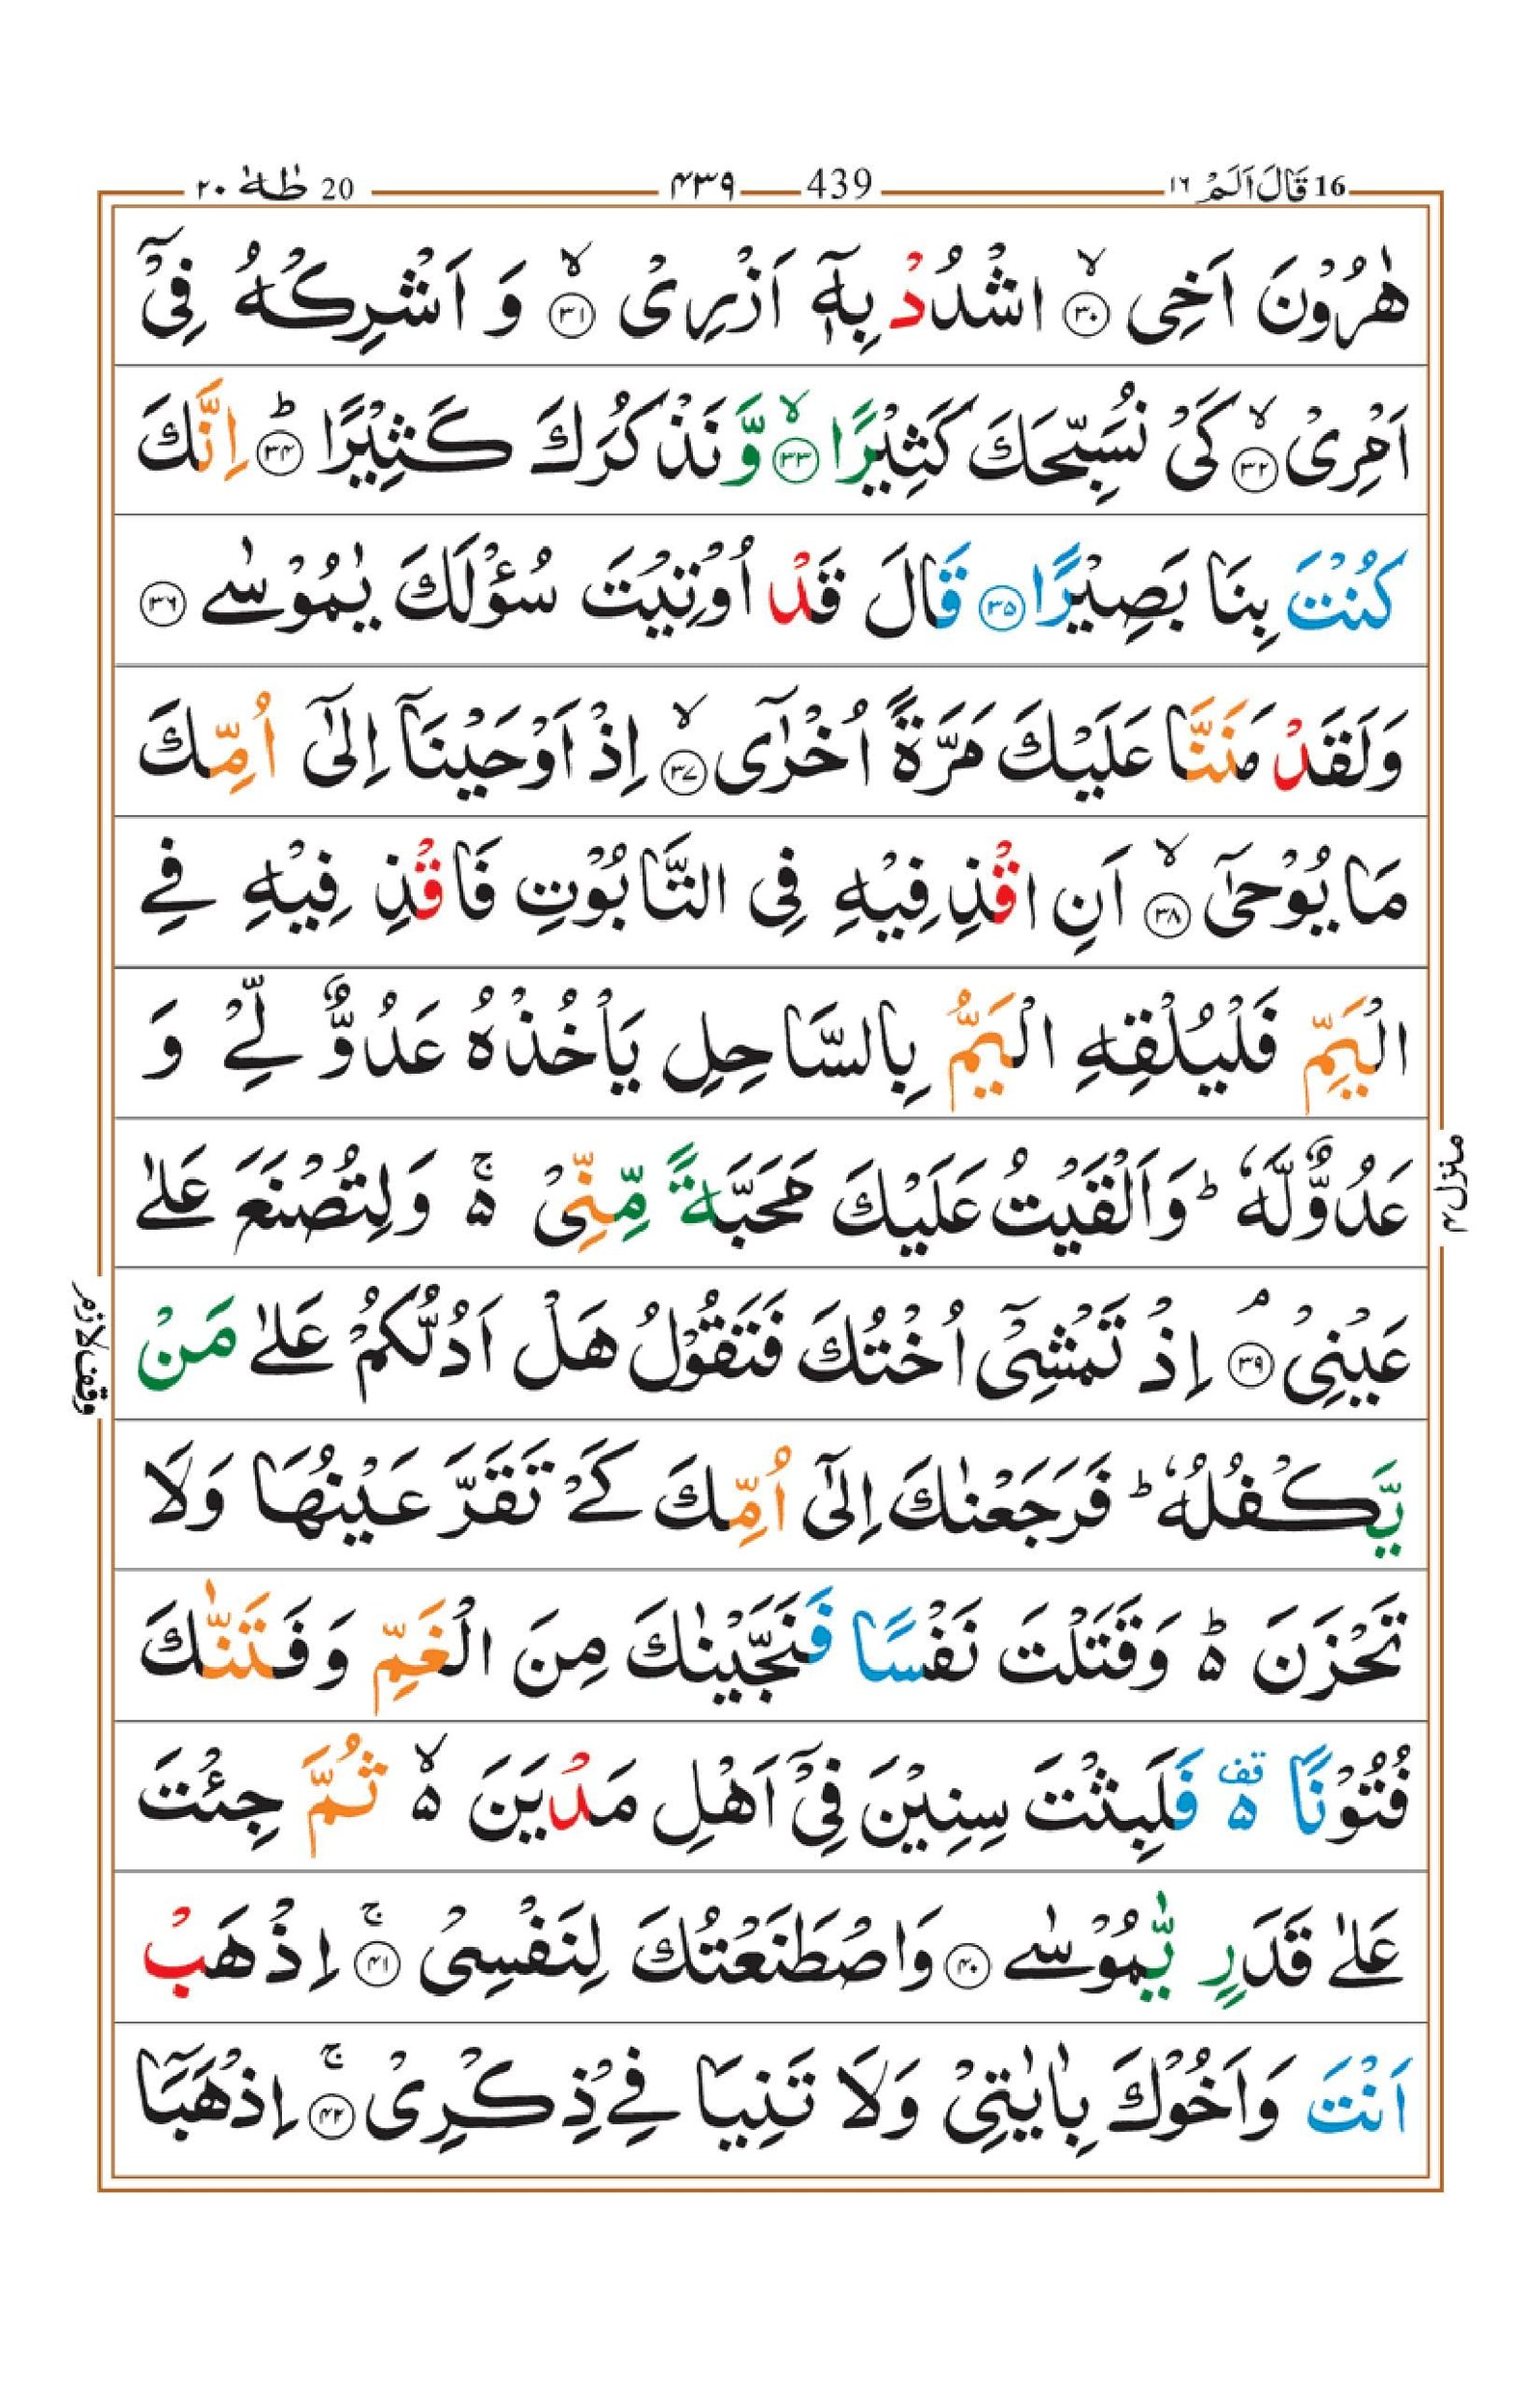 16 قَالَ اَلَمْ ١٦ 439 ۴۳۹ 20 طٰهٰ ٢٠
هٰرُوْنَ اَخِی ۙ﴿۳۰﴾ اشْدُدْ بِهٖۤ اَزْرِیْ ۙ﴿۳۱﴾ وَ اَشْرِكْهُ فِیْۤ
اَمْرِیْ ۙ﴿۳۲﴾ كَیْ نُسَبِّحَكَ كَثِیْرًا ۙ﴿۳۳﴾ وَّ نَذْكُرَكَ كَثِیْرًا ؕ﴿۳۴﴾ اِنَّكَ
كُنْتَ بِنَا بَصِیْرًا ﴿۳۵﴾ قَالَ قَدْ اُوْتِیْتَ سُؤْلَكَ یٰمُوْسٰے ﴿۳۶﴾
وَلَقَدْ مَنَنَّا عَلَیْكَ مَرَّةً اُخْرٰۤی ۙ﴿۳۷﴾ اِذْ اَوْحَیْنَاۤ اِلٰۤی اُمِّكَ
مَا یُوْحٰۤی ۙ﴿۳۸﴾ اَنِ اقْذِفِیْهِ فِی التَّابُوْتِ فَاقْذِ فِیْهِ فِے
الْیَمِّ فَلْیُلْقِهِ الْیَمُّ بِالسَّاحِلِ یَاْخُذْهُ عَدُوٌّ لِّےْ وَ
عَدُوٌّ لَّهٗ ؕ وَاَلْقَیْتُ عَلَیْكَ مَحَبَّةً مِّنِّیْ ۚ۬ وَلِتُصْنَعَ عَلٰے
عَیْنِیْ ۘ﴿۳۹﴾ اِذْ تَمْشِیْۤ اُخْتُكَ فَتَقُوْلُ هَلْ اَدُلُّكُمْ عَلٰے مَنْ
یَّكْفُلُهٗ ؕ فَرَجَعْنٰكَ اِلٰۤی اُمِّكَ كَےْ تَقَرَّ عَیْنُهَا وَلَا
تَحْزَنَ ؕ۬ وَقَتَلْتَ نَفْسًا فَنَجَّیْنٰكَ مِنَ الْغَمِّ وَ فَتَنّٰكَ
فُتُوْنًا ۫۬ فَلَبِثْتَ سِنِیْنَ فِیْۤ اَهْلِ مَدْیَنَ ۙ۬ ثُمَّ جِئْتَ
عَلٰے قَدَرٍ یّٰمُوْسٰے ﴿۴۰﴾ وَاصْطَنَعْتُكَ لِنَفْسِیْ ۚ﴿۴۱﴾ اِذْهَبْ
اَنْتَ وَاَخُوْكَ بِاٰیٰتِیْ وَلَا تَنِیَا فِےْ ذِكْرِیْ ۚ﴿۴۲﴾ اِذْهَبَاۤ
منزل ۴
وقف لازم